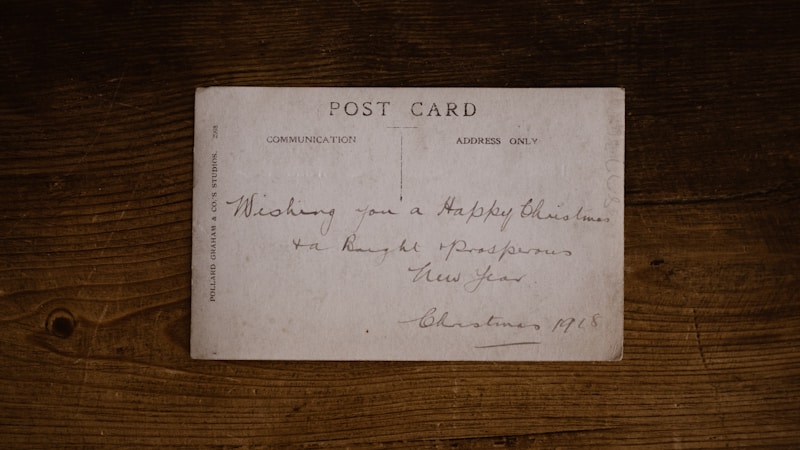 POST CARD
COMMUNICATION
ADDRESS ONLY
POLLARD GRAHAM & CO.'S STUDIOS.
Wishing you a Happy Christmas
& a Bright & Prosperous
New Year.
Christmas 1918